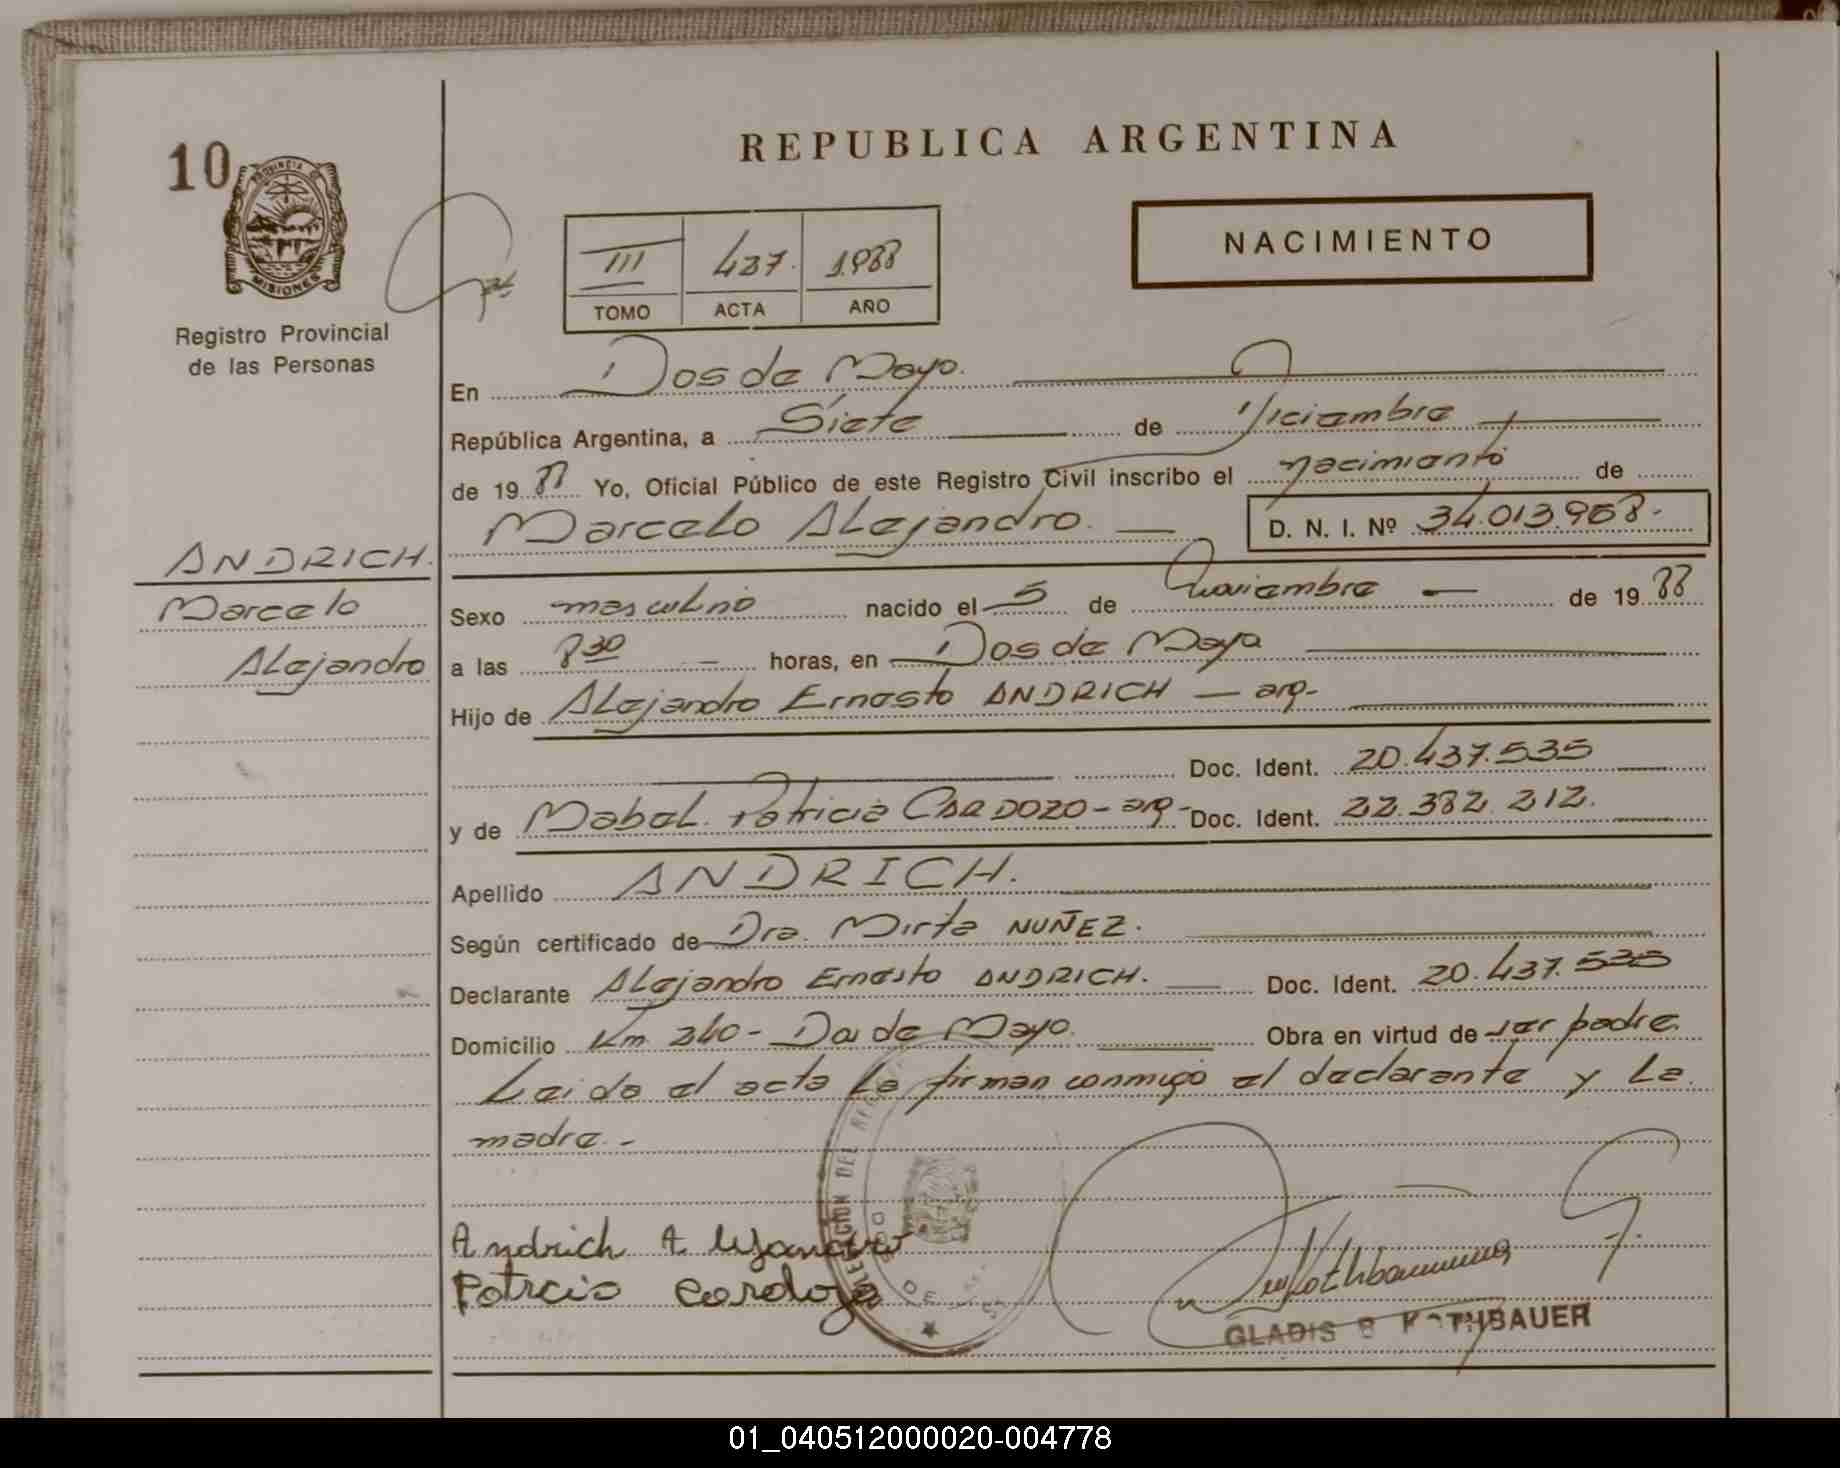 10
PROVINCIA DE
MISIONES
Registro Provincial
de las Personas
REPUBLICA ARGENTINA
NACIMIENTO
III 427. 1988
TOMO ACTA AÑO
En Dos de Mayo.
República Argentina, a Siete de Diciembre
de 19 88 Yo, Oficial Público de este Registro Civil inscribo el nacimiento de
Marcelo Alejandro. D. N. I. Nº 34.013.968.-
ANDRICH.
Marcelo
Alejandro
Sexo masculino nacido el 5 de Noviembre de 19 88
a las 8 30 horas, en Dos de Mayo
Hijo de Alejandro Ernesto ANDRICH - arg-
Doc. Ident. 20.437.535
y de Mabel Patricia CARDOZO - arg - Doc. Ident. 22.382.212.
Apellido ANDRICH.
Según certificado de Dra. Mirta NUÑEZ.
Declarante Alejandro Ernesto ANDRICH. Doc. Ident. 20.437.535
Domicilio Km 240 - Dos de Mayo. Obra en virtud de ser padre.
Leida el acta la firman conmigo el declarante y la
madre.-
Andrich A
Patrcia Cardozo
GLADIS ROTHBAUER
01_040512000020-004778